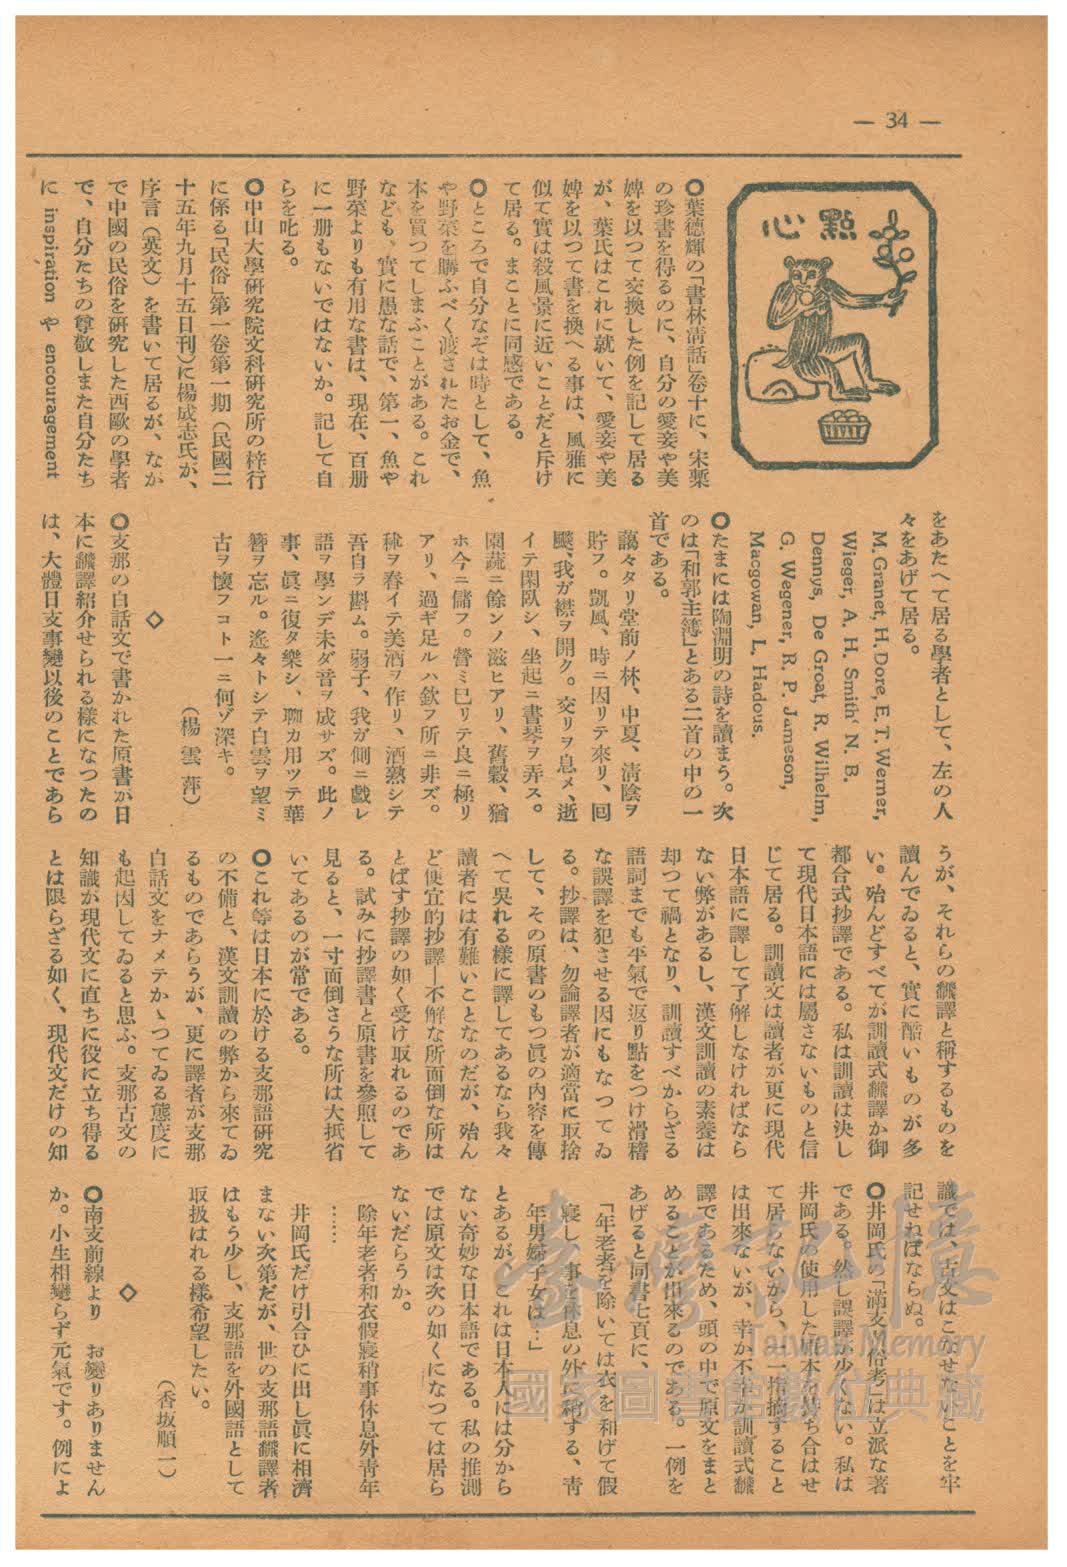 — 34 —
點心
○葉德輝の「書林清話」卷十に、宋槧
の珍書を得るのに、自分の愛妾や美
婢を以つて交換した例を記して居る
が、葉氏はこれに就いて、愛妾や美
婢を以つて書を換へる事は、風雅に
似て實は殺風景に近いことだと斥け
て居る。まことに同感である。
○ところで自分なぞは時として、魚
や野菜を購ふべく渡されたお金で、
本を買つてしまふことがある。これ
なども、實に愚な話で、第一、魚や
野菜よりも有用な書は、現在、百册
に一册もないではないか。記して自
らを叱る。
○中山大學研究院文科研究所の梓行
に係る「民俗」第一卷第一期（民國二
十五年九月十五日刊）に楊成志氏が、
序言（英文）を書いて居るが、なか
で中國の民俗を研究した西歐の學者
で、自分たちの尊敬しまた自分たち
に inspiration や encouragement
をあたへて居る學者として、左の人
々をあげて居る。
M. Granet, H. Dore, E. T. Werner,
Wieger, A. H. Smith' N. B.
Dennys, De Groat, R. Wilhelm,
G. Wegener, R. P. Jameson,
Macgowan, L. Hadous.
○たまには陶淵明の詩を讀まう。次
のは「和郭主簿」とある二首の中の一
首である。
藹々タリ堂前ノ林、中夏、清陰ヲ
貯フ。凱風、時ニ因リテ來リ、囘
飈、我ガ襟ヲ開ク。交リヲ息メ、逝
イテ閑臥シ、坐起ニ書琴ヲ弄ス。
園蔬ニ餘ンノ滋ヒアリ、舊穀、猶
ホ今ニ儲フ。營ミ已リテ良ニ極リ
アリ、過ギ足ルハ欽フ所ニ非ズ。
秫ヲ舂イテ美酒ヲ作リ、酒熟シテ
吾自ラ斟ム。弱子、我ガ側ニ戲レ
語ヲ學ンデ未ダ音ヲ成サズ。此ノ
事、眞ニ復タ樂シ、聊カ用ツテ華
簪ヲ忘ル。遙々トシテ白雲ヲ望ミ
古ヲ懷フコト一ニ何ゾ深キ。
（楊雲萍）
◇
○支那の白話文で書かれた原書が日
本に飜譯紹介せられる樣になつたの
は、大體日支事變以後のことであら
うが、それらの飜譯と稱するものを
讀んでゐると、實に酷いものが多
い。殆んどすべてが訓讀式飜譯か御
都合式抄譯である。私は訓讀は決し
て現代日本語には屬さないものと信
じて居る。訓讀文は讀者が更に現代
日本語に譯して了解しなければなら
ない弊があるし、漢文訓讀の素養は
却つて禍となり、訓讀すべからざる
語詞までも平氣で返り點をつけ滑稽
な誤譯を犯させる因にもなつてゐ
る。抄譯は、勿論譯者が適當に取捨
して、その原書のもつ眞の内容を傳
へて呉れる樣に譯してあるなら我々
讀者には有難いことなのだが、殆ん
ど便宜的抄譯—不解な所面倒な所は
とばす抄譯の如く受け取れるのであ
る。試みに抄譯書と原書を參照して
見ると、一寸面倒さうな所は大抵省
いてあるのが常である。
○これ等は日本に於ける支那語研究
の不備と、漢文訓讀の弊から來てゐ
るものであらうが、更に譯者が支那
白話文をナメテかゝつてゐる態度に
も起因してゐると思ふ。支那古文の
知識が現代文に直ちに役に立ち得る
とは限らざる如く、現代文だけの知
識では、古文はこなせないことを牢
記せねばならぬ。
○井岡氏の「滿支習俗考」は立派な著
である。然し誤譯が少くない。私は
井岡氏の使用した原本を持ち合はせ
て居らないから、一一指摘すること
は出來ないが、幸か不幸か訓讀式飜
譯であるため、頭の中で原文をまと
めることが出來るのである。一例を
あげると同書七頁に、
「年老者を除いては衣を和げて假
寢し、事を休息の外に稍する、靑
年男婦子女は…」
とあるが、これは日本人には分から
ない奇妙な日本語である。私の推測
では原文は次の如くになつては居ら
ないだらうか。
除年老者和衣假寢稍事休息外靑年
……
井岡氏だけ引合ひに出し眞に相濟
まない次第だが、世の支那語飜譯者
はもう少し、支那語を外國語として
取扱はれる樣希望したい。
（香坂順一）
◇
○南支前線より　お變りありません
か。小生相變らず元氣です。例によ
臺灣記憶
Taiwan Memory
國家圖書館數位典藏